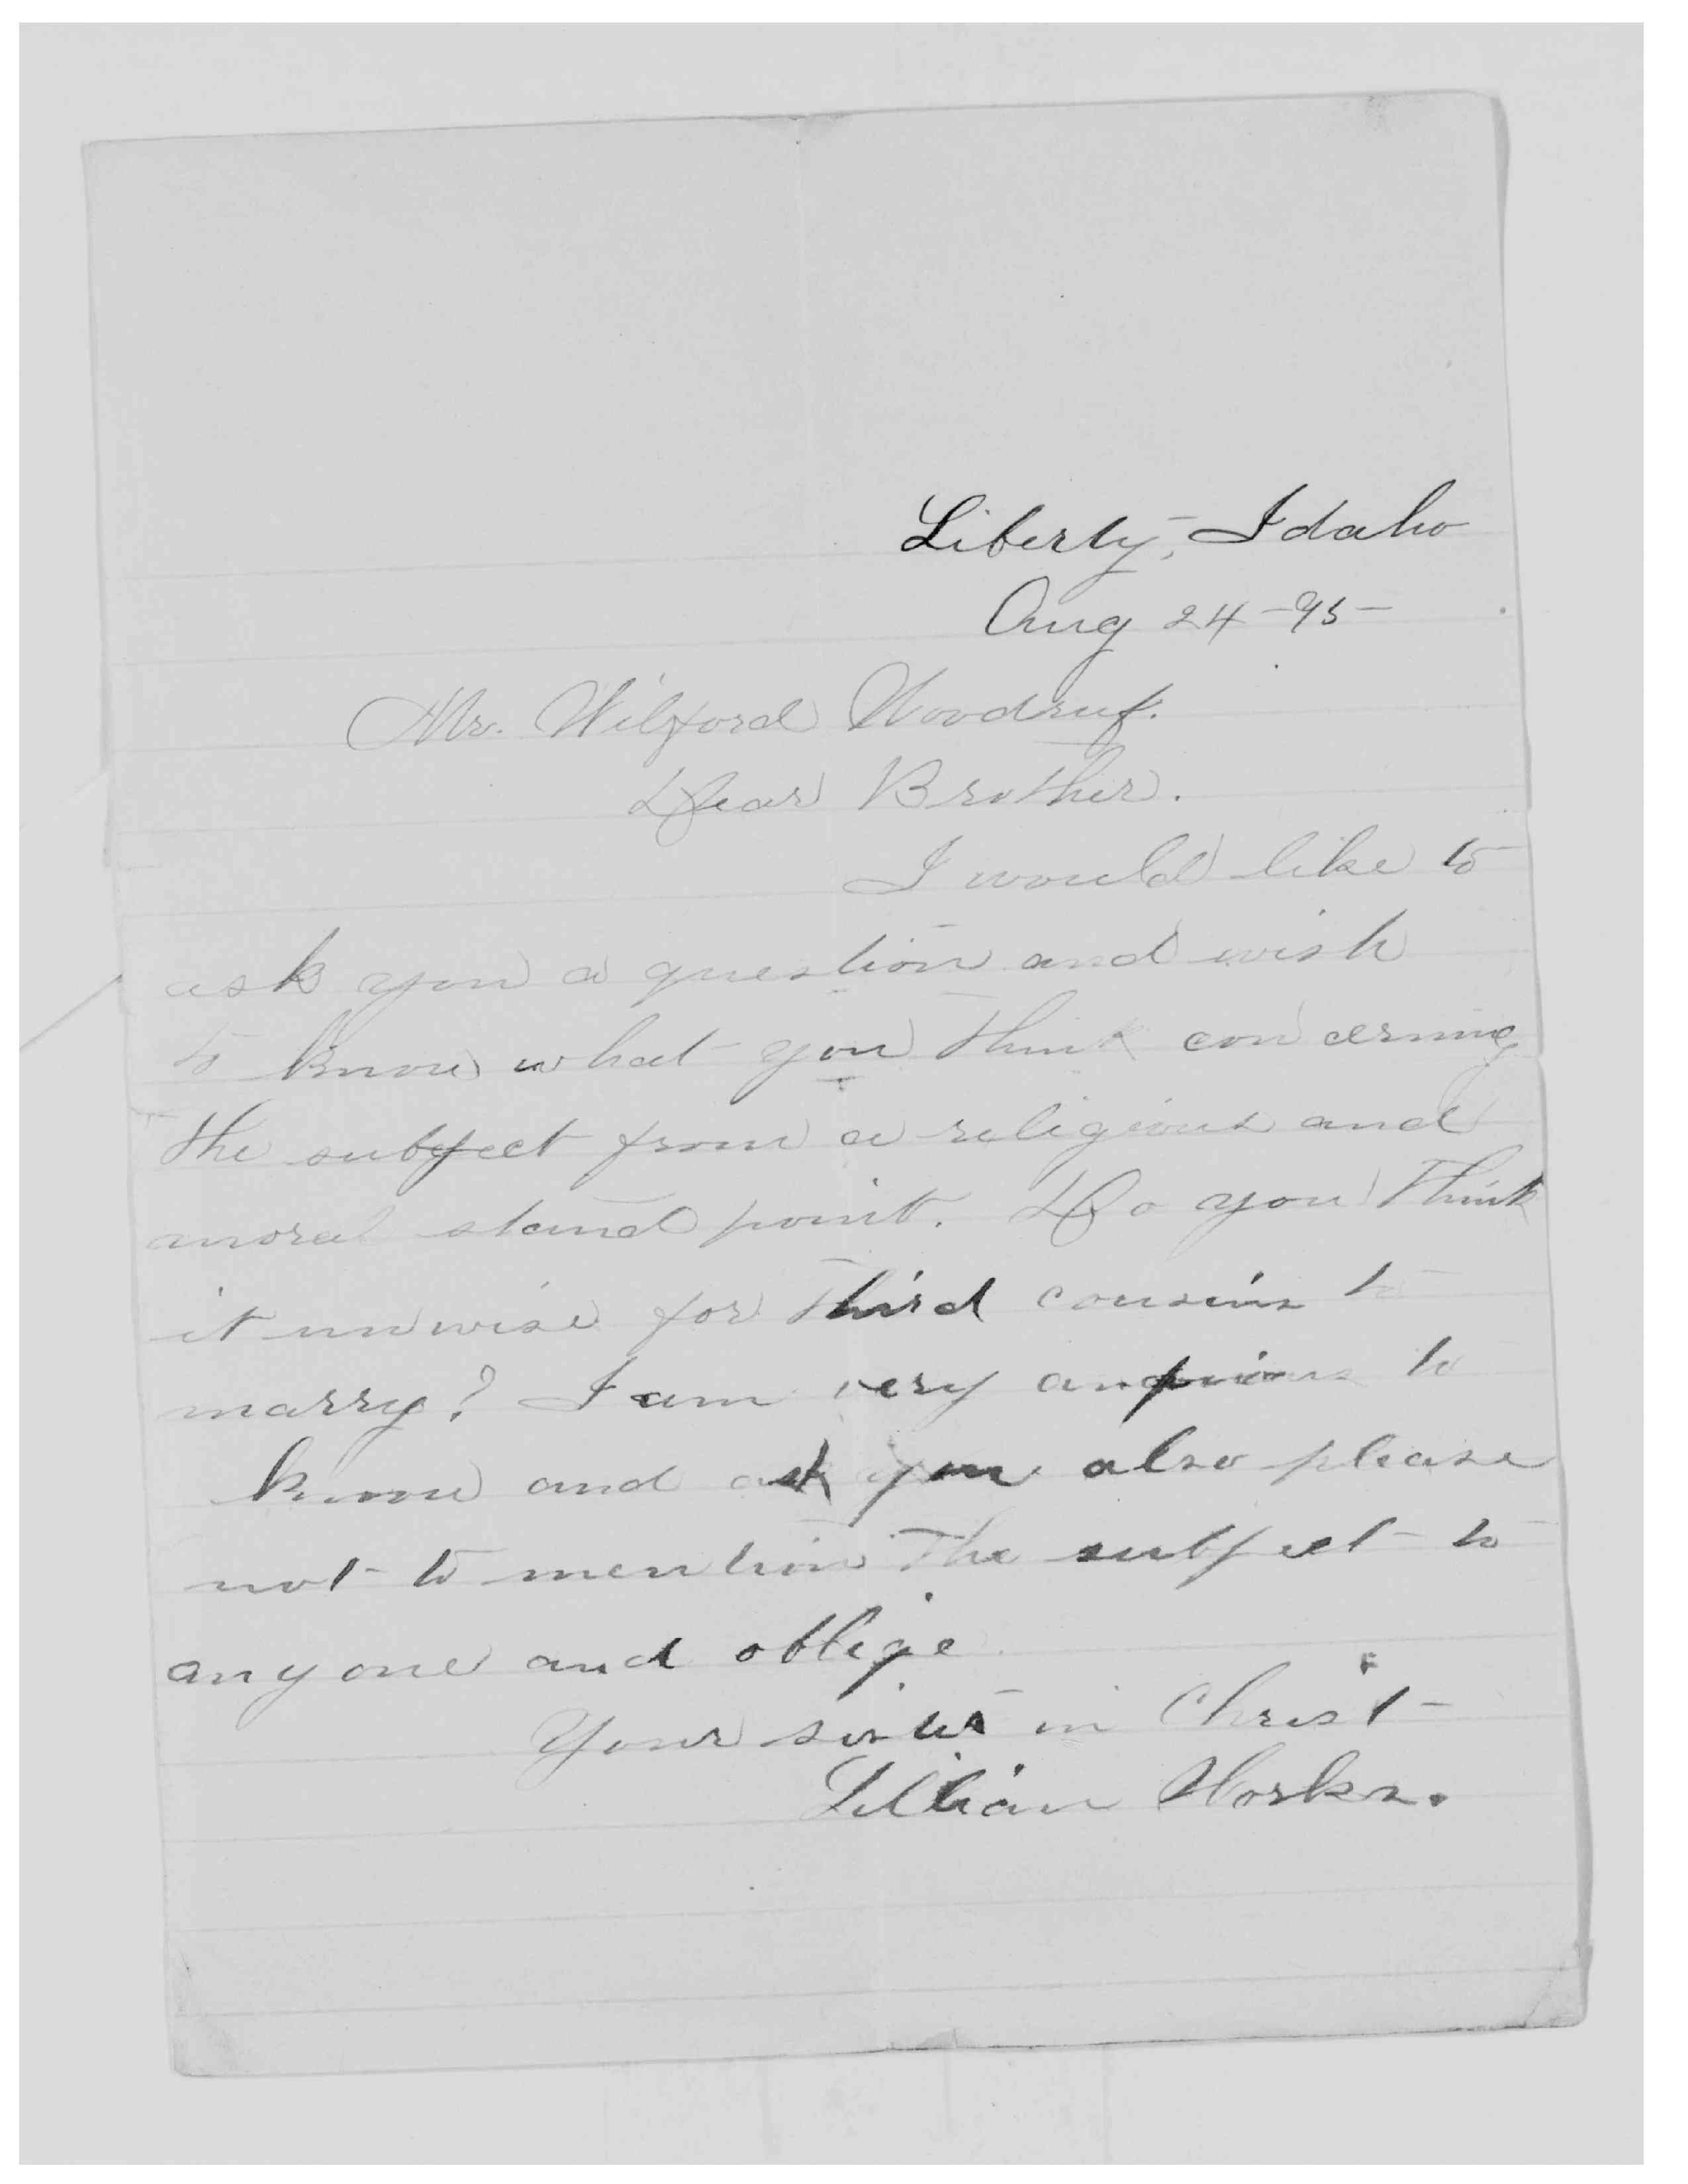 Liberty, Idaho
Aug 24-95-
Mr. Wilford Woodruf.
Dear Brother.
I would like to
ask you a question and wish
to know what you think concerning
the subject from a religious and
moral stand point. Do you think
it unwise for third cousins to
marry? I am very anxious to
know and ask you also please
not to mention the subject to
anyone and oblige
Your sister in Christ
Lillian Works.